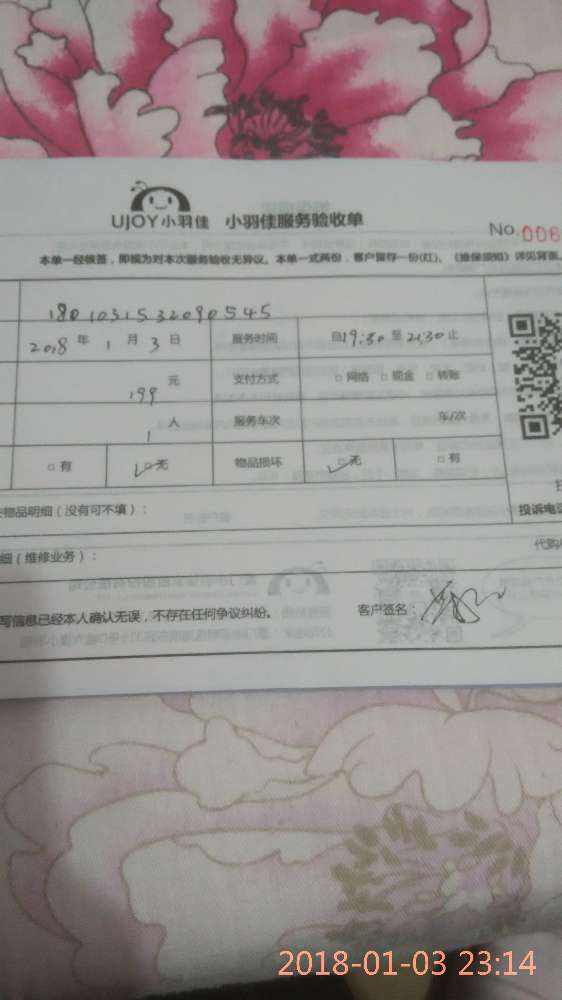 UJOY小羽佳 小羽佳服务验收单
No.006
本单一经核签，即视为对本次服务验收无异议。本单一式两份，客户留存一份(红)。《维保须知》详见背面。
1801031532090545
2018 年 1 月 3 日 服务时间 自19:30 至 21:30 止
199 元 支付方式 □ 网络 □ 现金 □ 转账
1 人 服务车次 车/次
□ 有 □ 无 物品损坏 □ 无 □ 有
物品明细（没有可不填）： 投诉电话
代购
细（维修业务）：
写信息已经本人确认无误，不存在任何争议纠纷。 客户签名：
2018-01-03 23:14